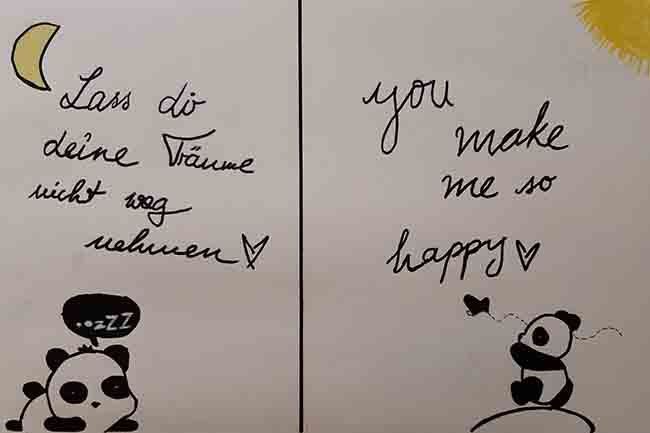 Lass dir
deine Träume
nicht weg
nehmen
..zZZ
you
make
me so
happy